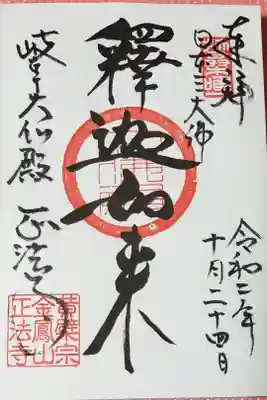 奉拝
日本三大佛
令和二年
十月二十四日
釋迦如来
岐阜大仏殿 正法寺
黄檗宗
金鳳山
正法寺